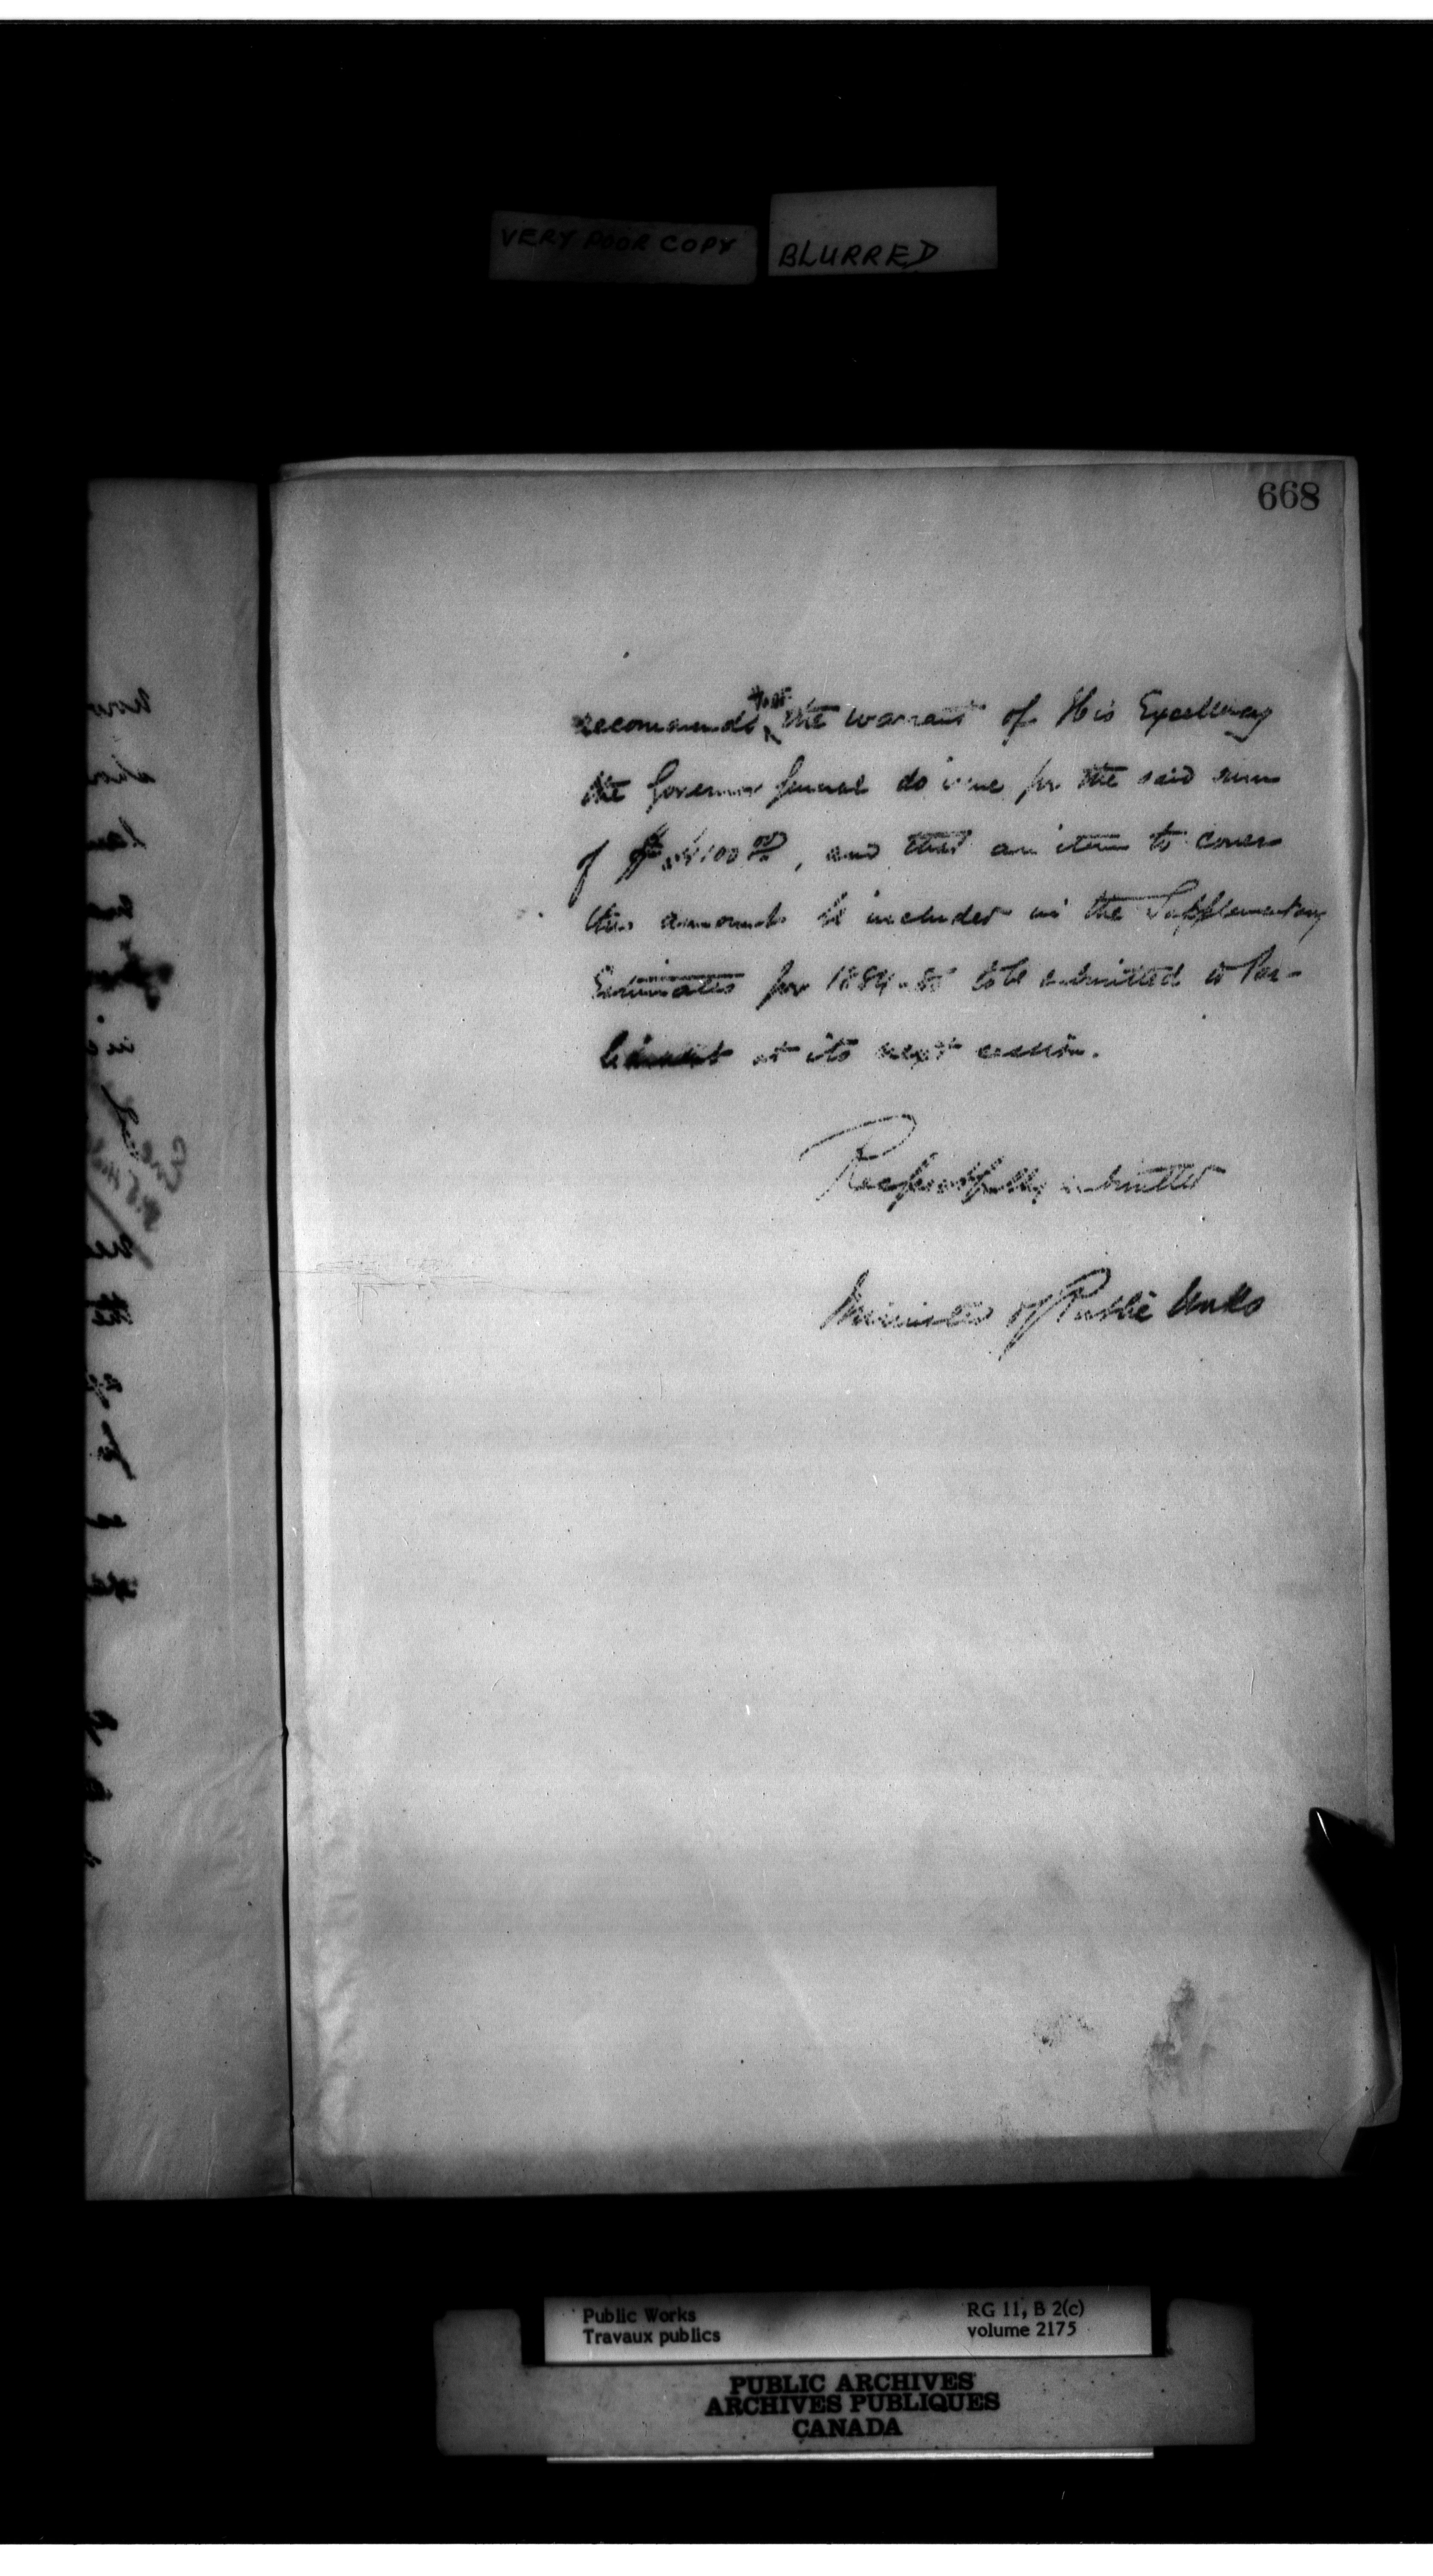 VERY POOR COPY
BLURRED
668
that
recommends the warrant of His Excellency
the Governor General do issue for the said sum
of 00/100, and that an item to cover
this amount be included in the Supplementary
Estimates for 1884-85 to be submitted to Par-
liament at its next session.
Respectfully submitted
Minister of Public Works
Public Works
Travaux publics
RG 11, B 2(c)
volume 2175
PUBLIC ARCHIVES
ARCHIVES PUBLIQUES
CANADA